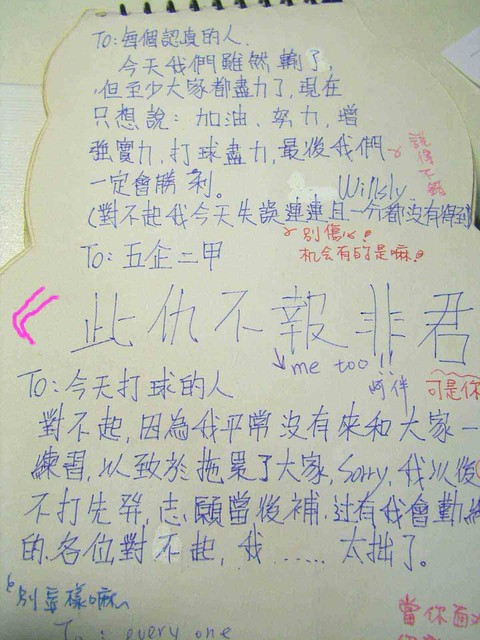 To: 每個認真的人.
今天我們雖然輸了,
但至少大家都盡力了, 現在
只想說: 加油、努力, 增
強實力, 打球盡力, 最後我們
說得不錯
一定會勝利。 Willsly
(對不起我今天失誤連連且一分都沒有得到)
別傷心!
To: 五企二甲
机会有的是嘛!
此仇不報非君
me too!!
To: 今天打球的人
可是你
對不起, 因為我平常沒有來和大家一
練習, 以致於拖累了大家, Sorry, 我以後
不打先發, 志願當後補, 还有我會勤練
的, 各位對不起, 我…… 太拙了。
別這樣嘛~
當你面
To: every one